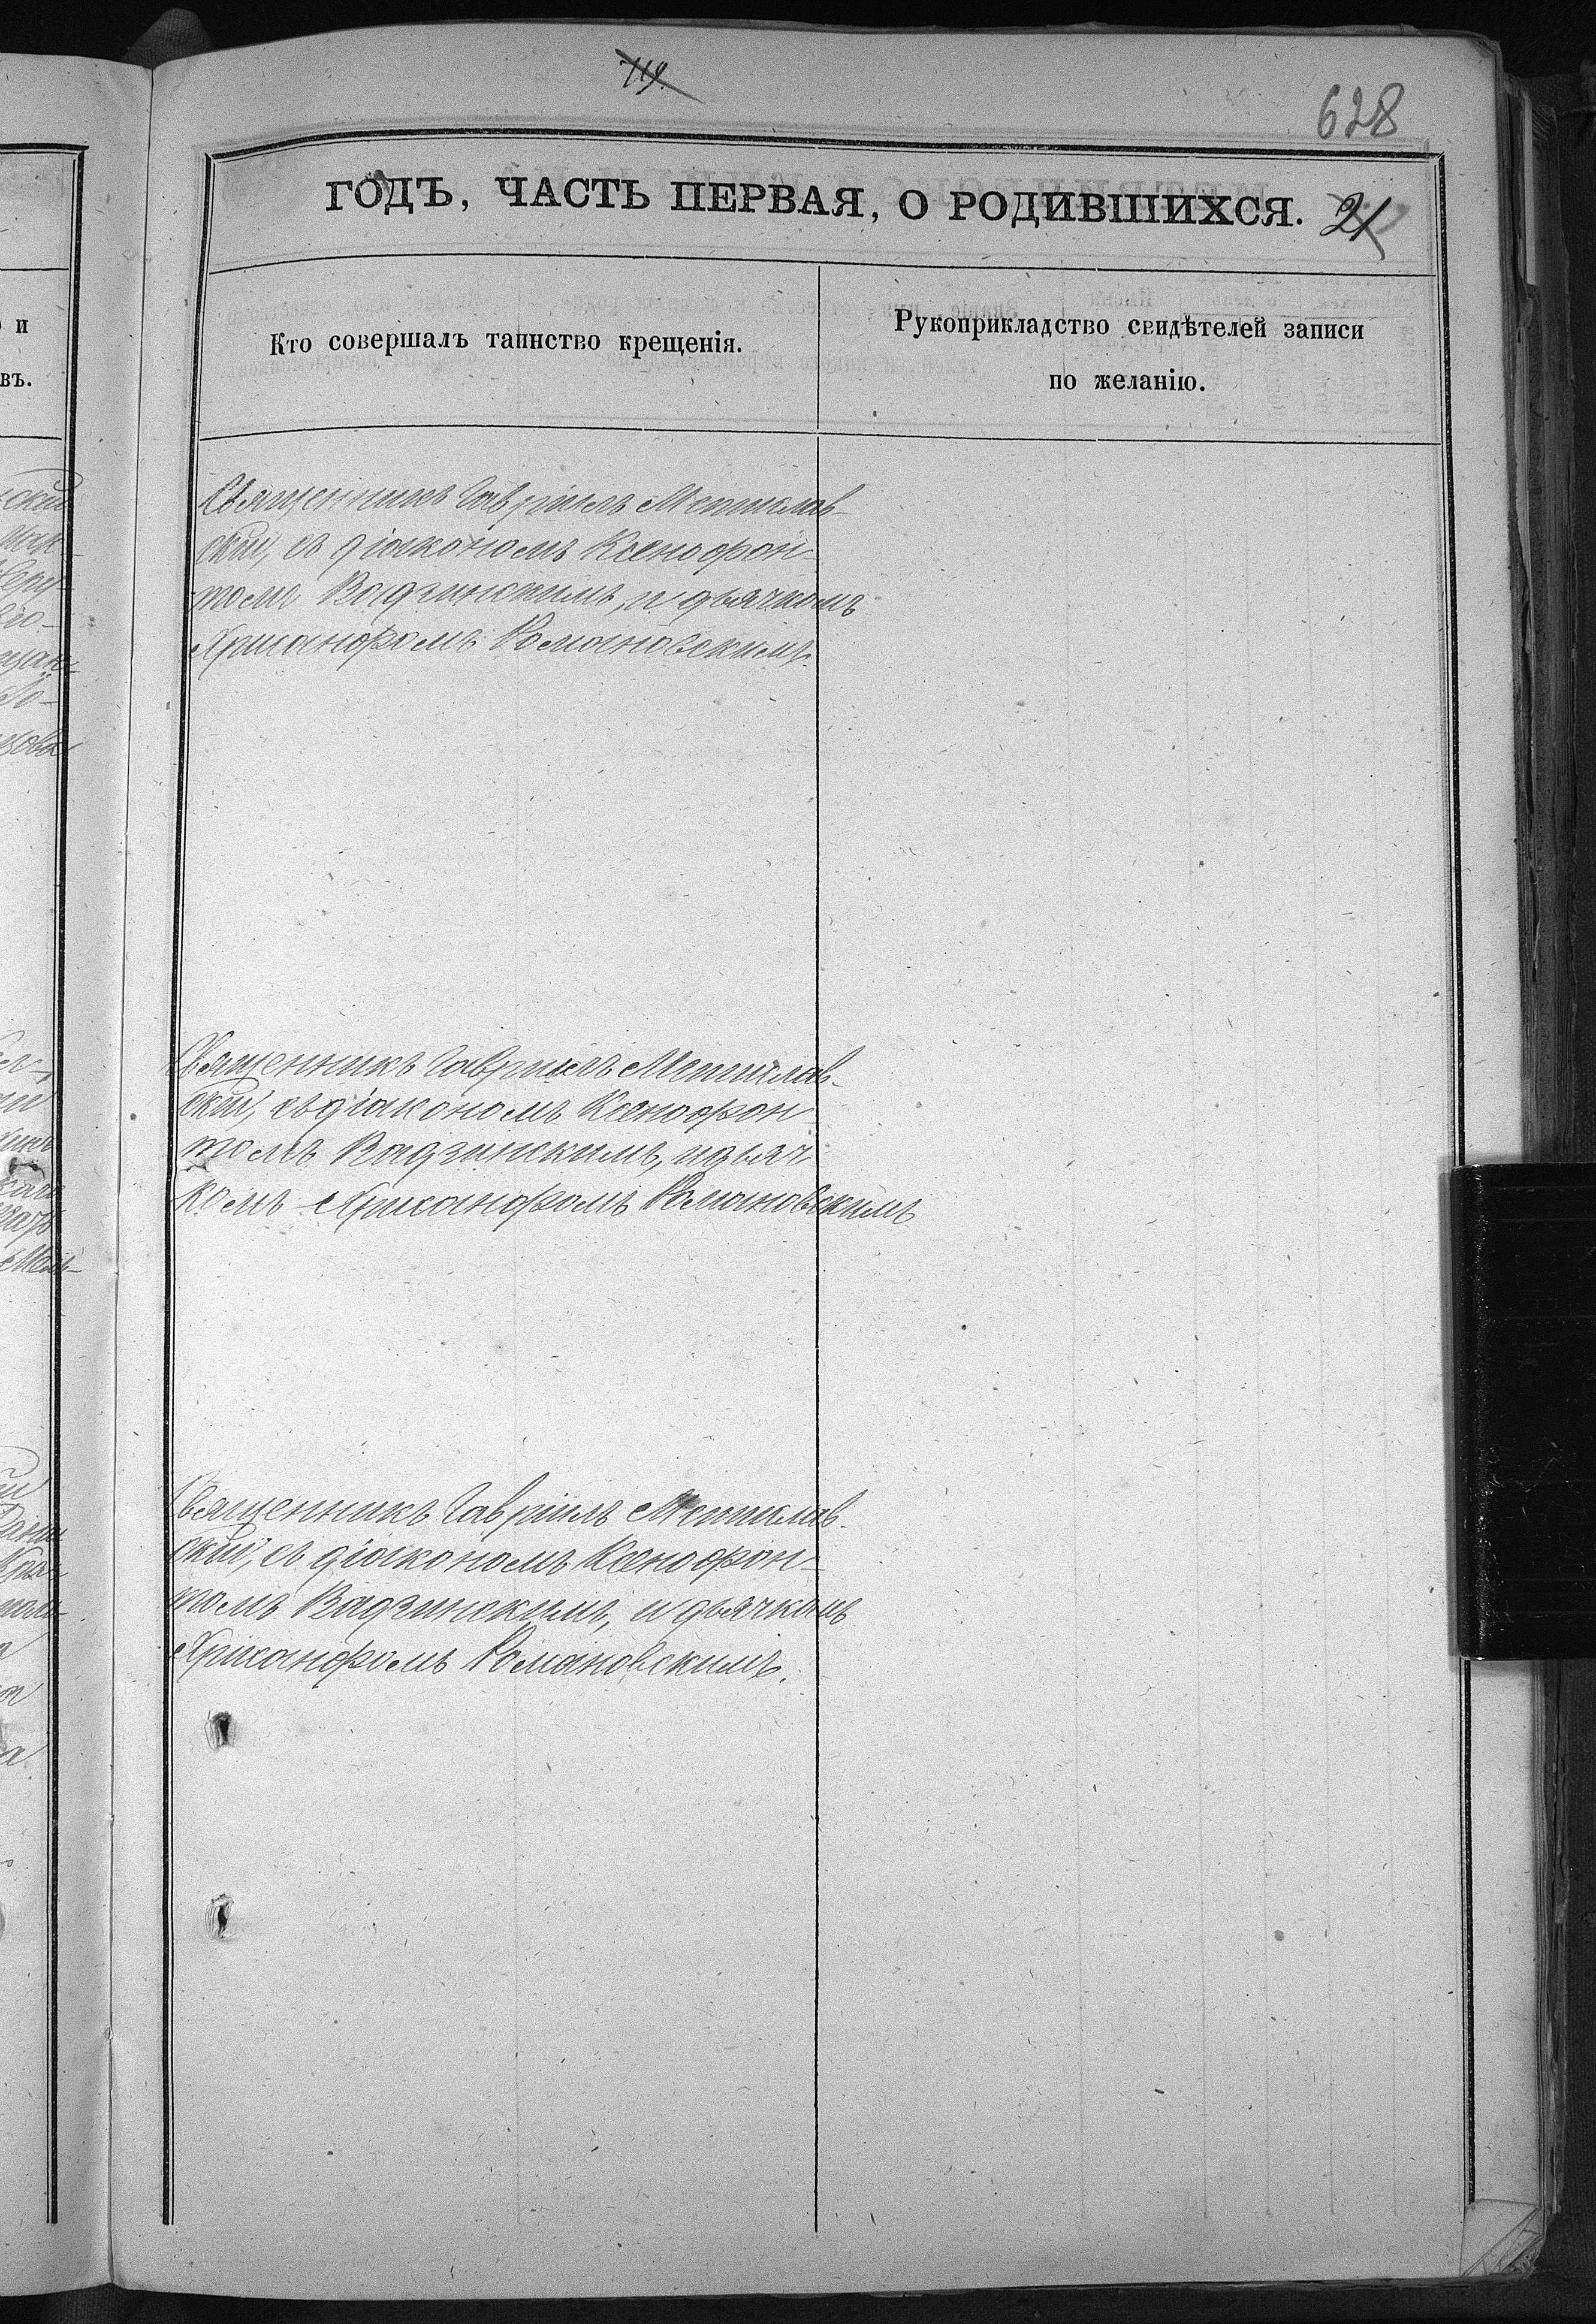 719.
628
ГОДЪ, ЧАСТЬ ПЕРВАЯ, О РОДИВШИХСЯ. 21
Кто совершалъ таинство крещенія.
Рукоприкладство свидѣтелей записи
по желанію.
Священникъ Гавріилъ Мстилав-
скій, съ діакономъ Ксенофон-
томъ Вадзинскимъ, и дьячкомъ
Хрисанфомъ Романовскимъ.
Священникъ Гавріилъ Мстилав-
скій, съ діакономъ Ксенофон-
томъ Вадзинскимъ, и дьяч
комъ Хрисанфомъ Романовскимъ
Священникъ Гавріилъ Мстилав-
скій, съ діакономъ Ксенофон-
томъ Вадзинскимъ, и дьячкомъ
Хрисанфомъ Романовскимъ.